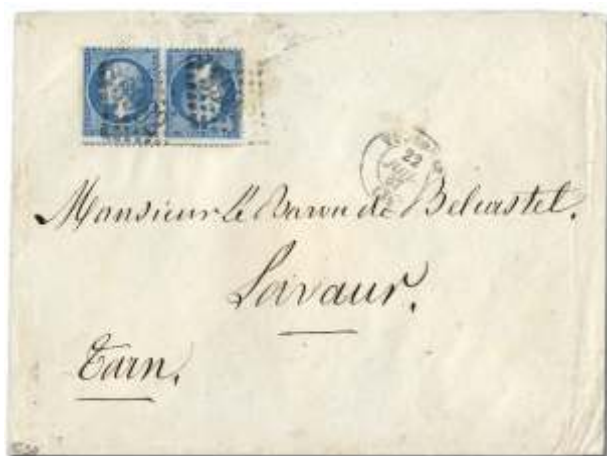 22
Monsieur le Baron de Belcastel.
Lavaur.
Tarn.